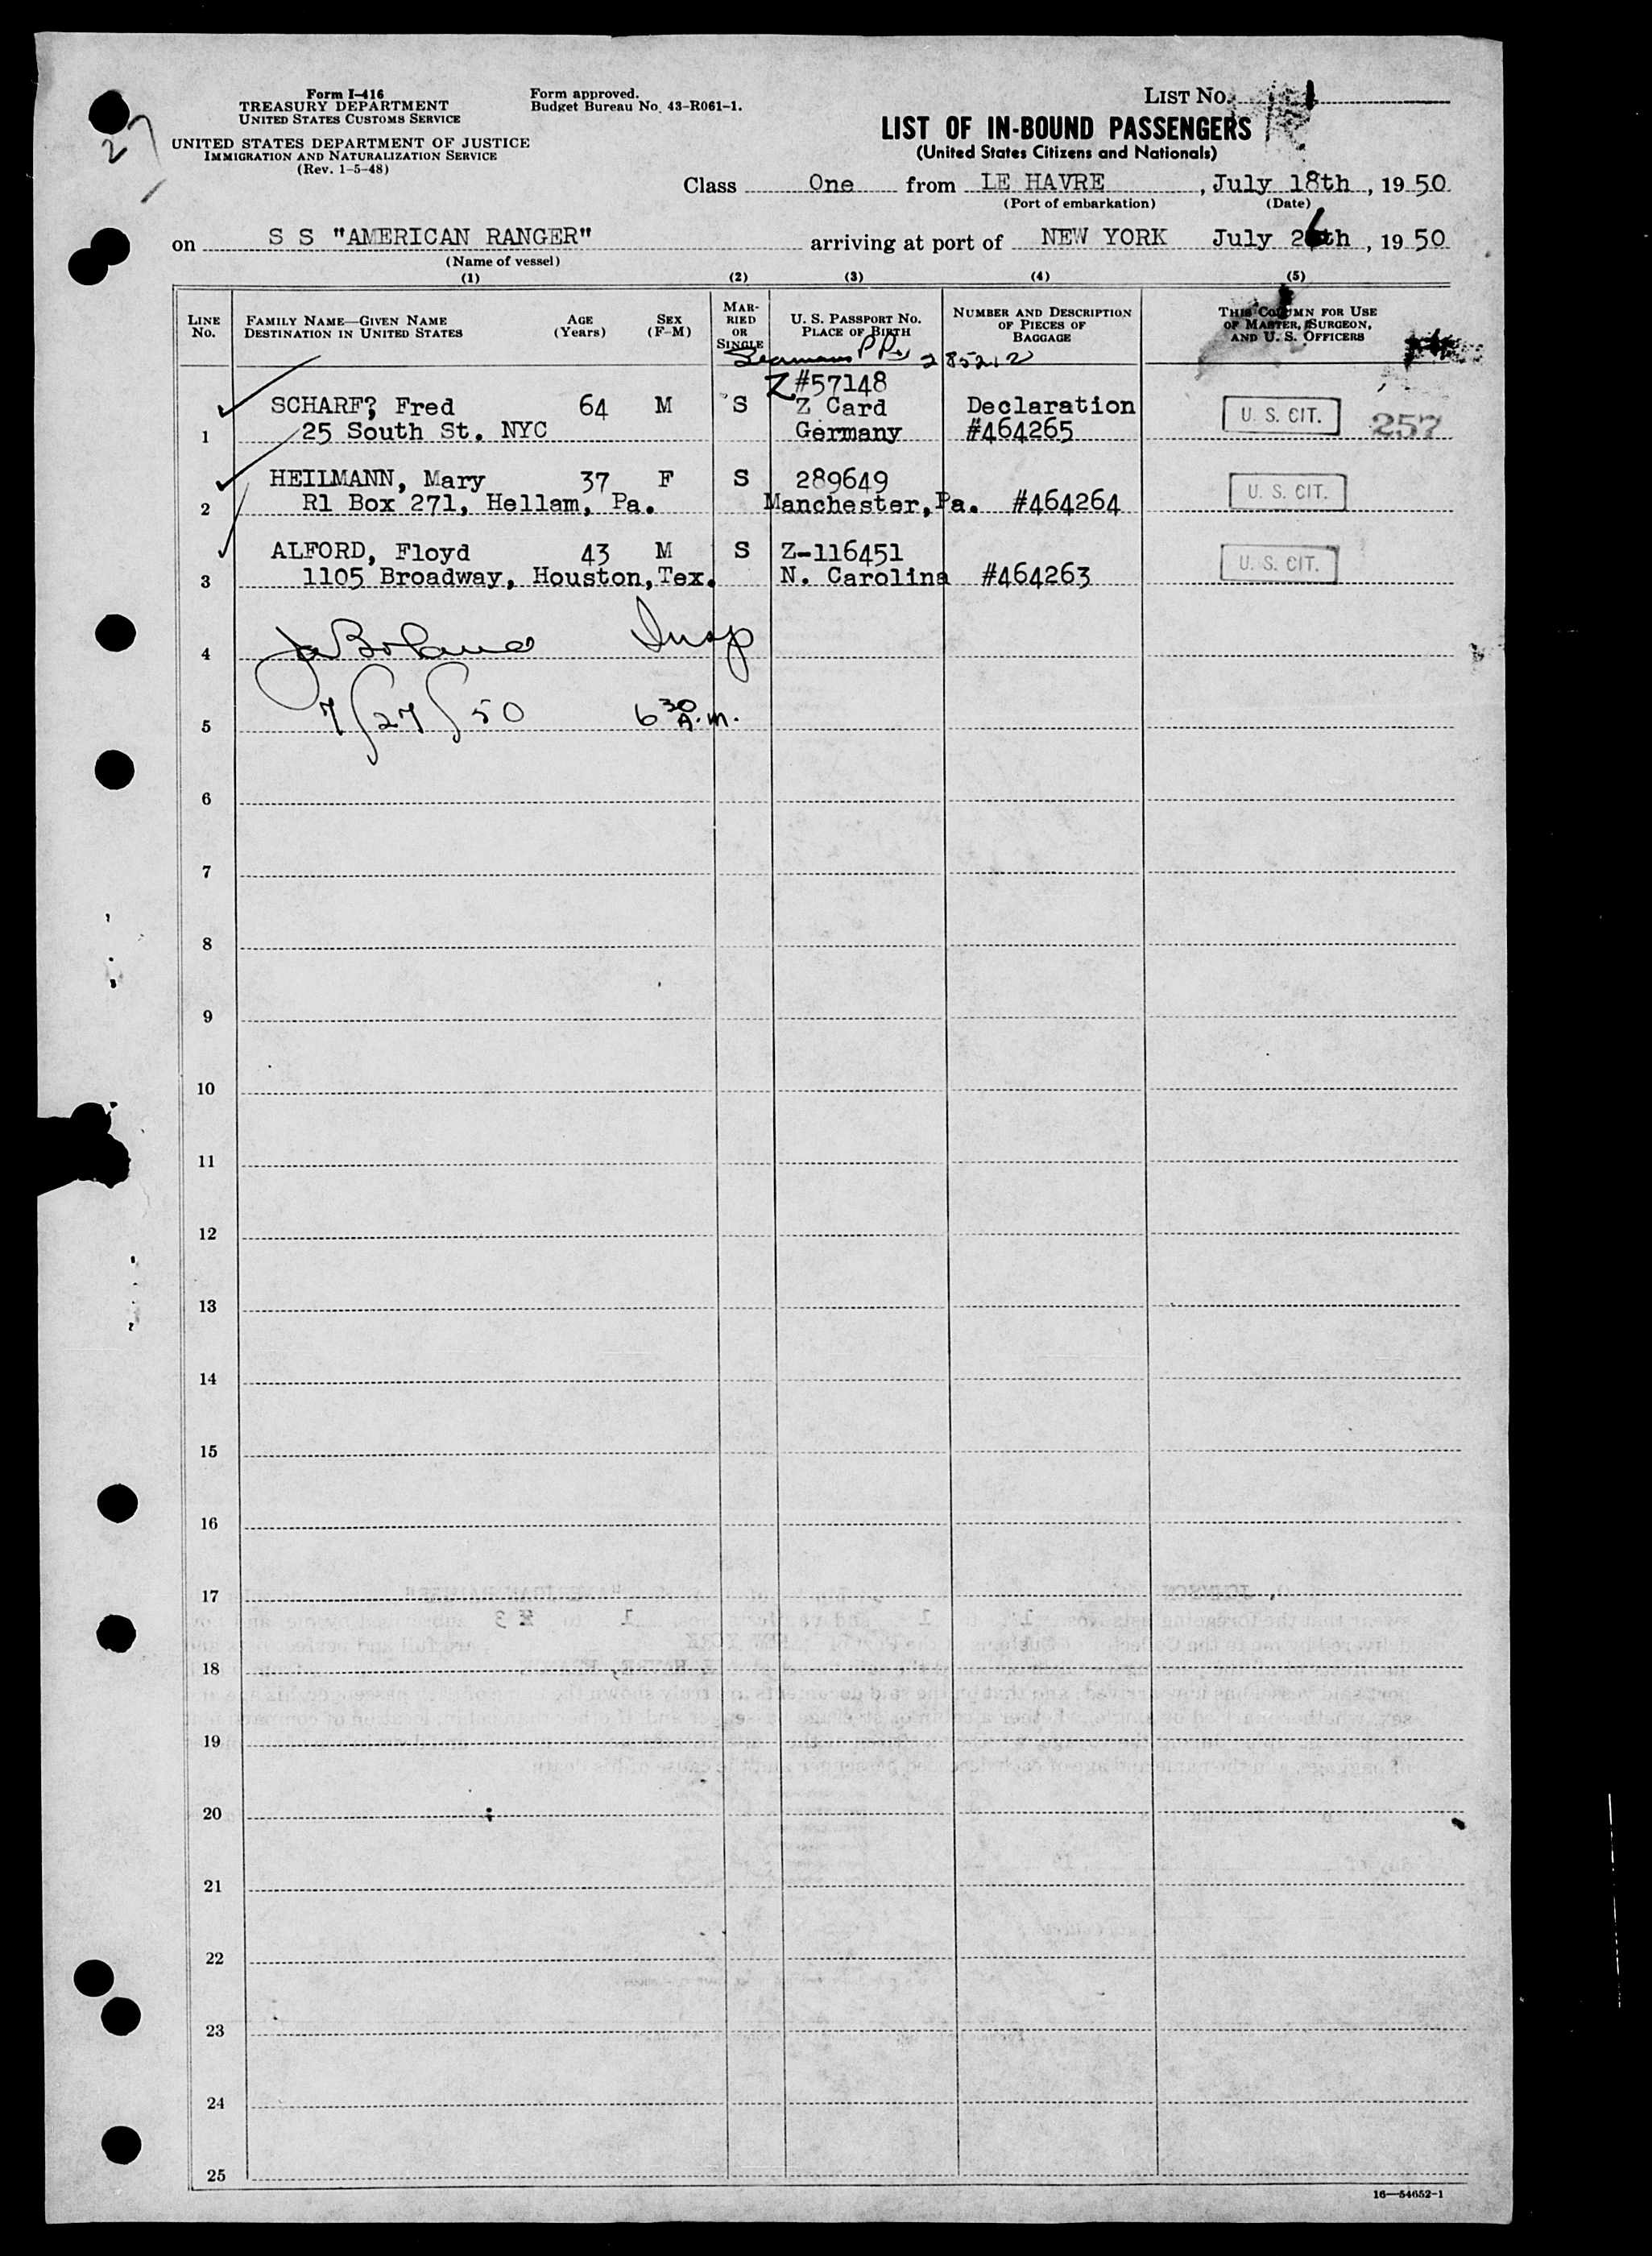 27
Form I-416
TREASURY DEPARTMENT
UNITED STATES CUSTOMS SERVICE
UNITED STATES DEPARTMENT OF JUSTICE
IMMIGRATION AND NATURALIZATION SERVICE
(Rev. 1-5-48)
Form approved.
Budget Bureau No. 43-R061-1.
LIST No. 1
LIST OF IN-BOUND PASSENGERS
(United States Citizens and Nationals)
Class One from LE HAVRE, July 18th, 1950
(Port of embarkation) (Date)
on S S "AMERICAN RANGER" arriving at port of NEW YORK July 26th, 1950
(Name of vessel)
(1) (2) (3) (4) (5)
LINE No.
FAMILY NAME—GIVEN NAME
DESTINATION IN UNITED STATES
AGE (Years)
SEX (F-M)
MARRIED OR SINGLE
U. S. PASSPORT NO.
PLACE OF BIRTH
NUMBER AND DESCRIPTION OF PIECES OF BAGGAGE
THIS COLUMN FOR USE OF MASTER, SURGEON, AND U. S. OFFICERS
Seamans PP 285212
Z #57148
SCHARF?, Fred 64 M S Z Card Declaration U. S. CIT. 257
1 25 South St. NYC Germany #464265
HEILMANN, Mary 37 F S 289649 U. S. CIT.
2 R1 Box 271, Hellam, Pa. Manchester, Pa. #464264
ALFORD, Floyd 43 M S Z-116451 U. S. CIT.
3 1105 Broadway, Houston, Tex. N. Carolina #464263
4 Boland Insp
5 7/27/50 6 30 A.M.
6
7
8
9
10
11
12
13
14
15
16
17
18
19
20
21
22
23
24
25
16—54652-1